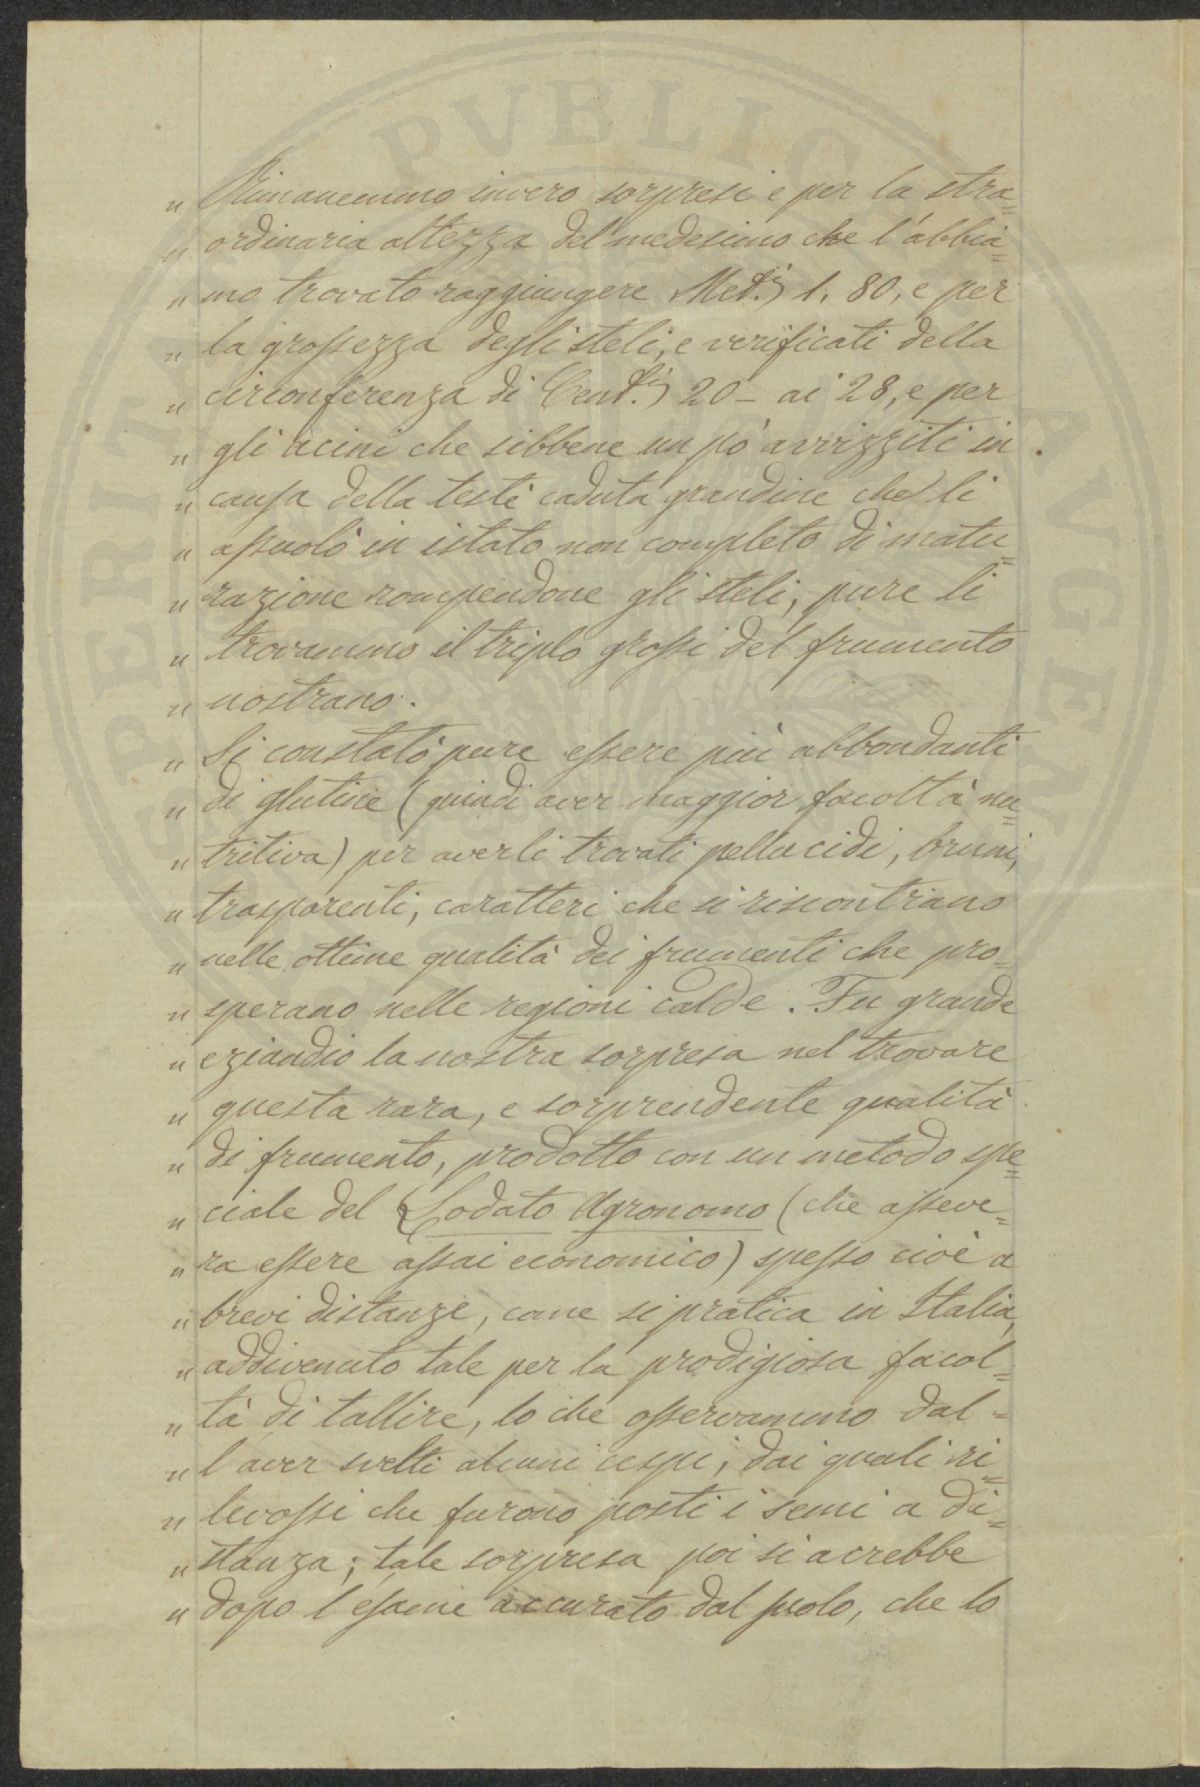 " Rimanemmo invero sorpresi e per la stra=
" ordinaria altezza del medesimo che l'abbia=
" mo trovato raggiungere Met.i 1. 80, e per
" la grossezza degli steli, e verificati della
" circonferenza di Cent.i 20 - ai 28, e per
" gli acini che sibbene un pò avvizziti in
" causa della testè caduta grandine che li
" assuolò in istato non completo di matu=
" razione rompendone gli steli, pure li
" trovammo il triplo grossi del frumento
" nostrano.
" Si constatò pure essere più abbondanti
" di glutine (quindi aver maggior facoltà nu=
" tritiva) per averli trovati pellucidi, bruni,
" trasparenti, caratteri che si riscontrano
" nelle ottime qualità dei frumenti che pro=
" sperano nelle regioni calde. Fu grande
" eziandio la nostra sorpresa nel trovare
" questa rara, e sorprendente qualità
" di frumento, prodotto con un metodo spe=
" ciale del Lodato Agronomo (che asseve=
" ra essere assai economico) spesso cioè a
" brevi distanze, come si pratica in Italia,
" addivenuto tale per la prodigiosa facol=
" tà di tallire, lo che osservammo dal=
" l aver svelti alcuni cespi, dai quali ri=
" levossi che furono posti i semi a di=
" stanza; tale sorpresa poi si accrebbe
" dopo l'esame accurato dal suolo, che lo
PVBLICA
PERITAS
AVGENDA